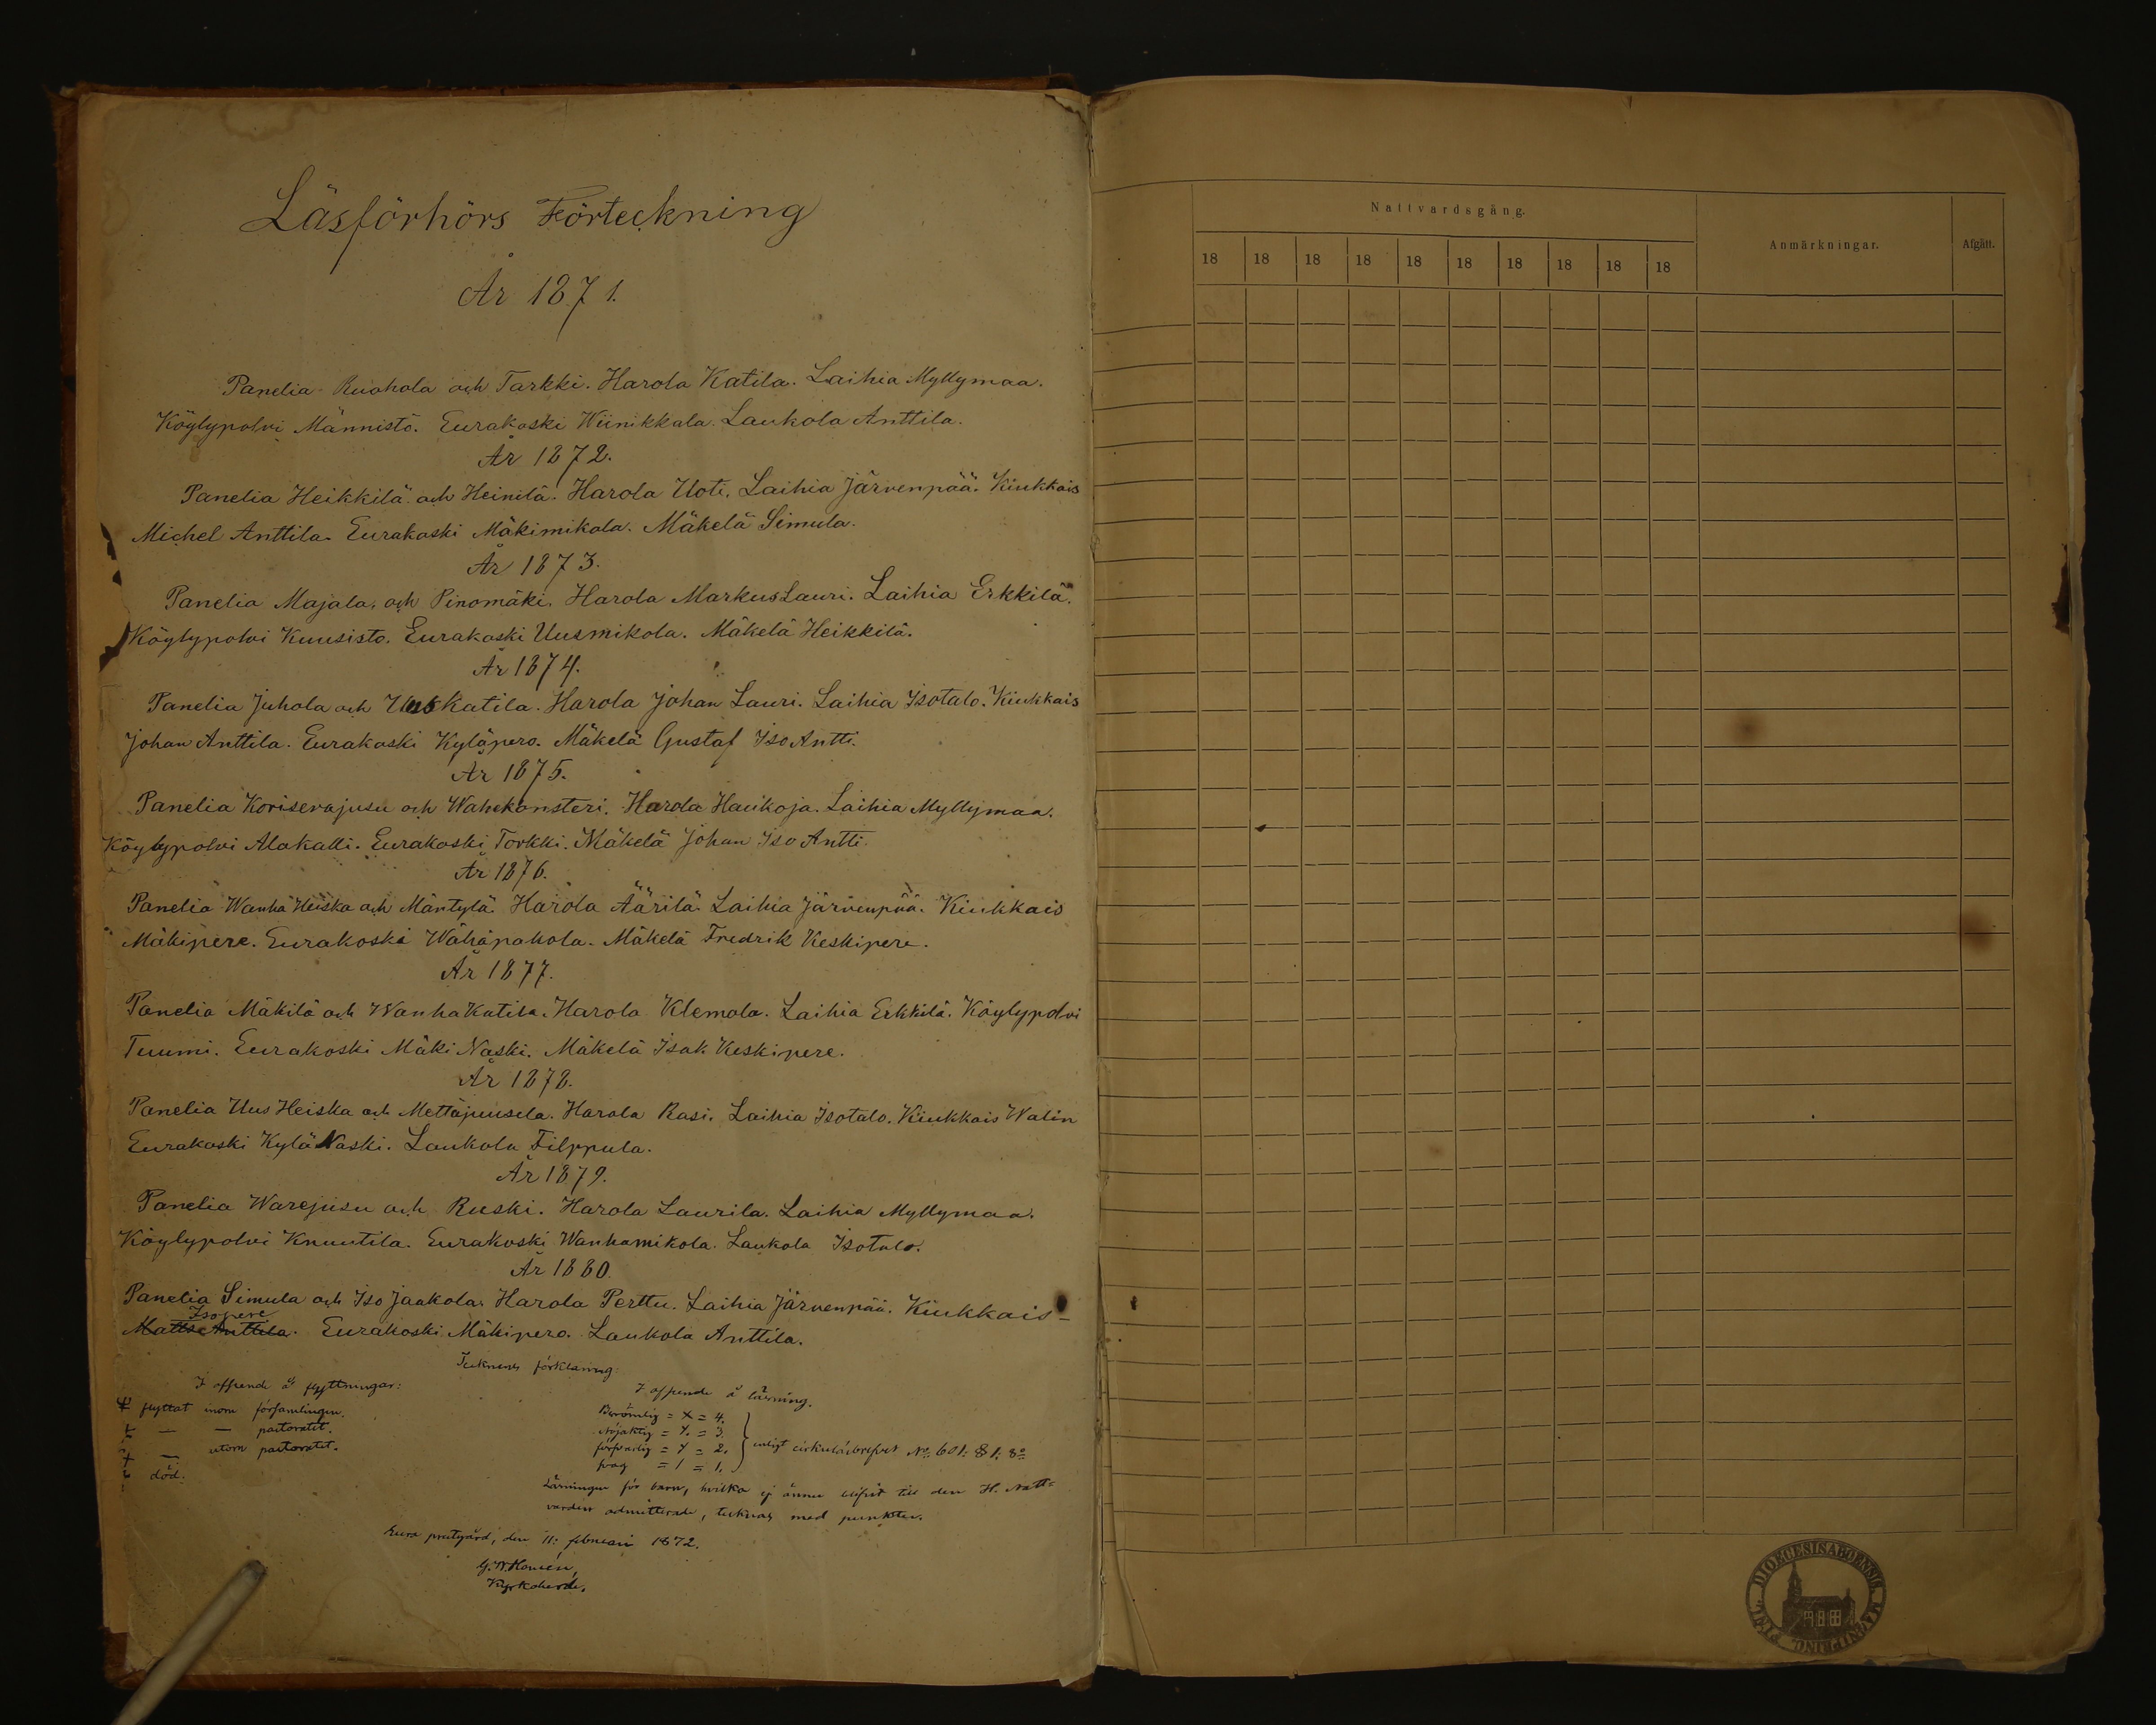 Läsförhörs Förteckning
År 1871.
Panelia Ruohola och Tarkki. Harola Katila. Laihia Myllymaa.
Köylypolvi Männistö. Eurakoski Wiinikkala. Laukola Anttila.
År 1872.
Panelia Heikkilä och Heinilä. Harola Uoti. Laihia Järvenpää. Kiukkais
Michel Anttila. Eurakoski Mäkimikola. Mäkelä Simula.
År 1873.
Panelia Majala, och Pinomäki. Harola Markus Lauri. Laihia Erkkilä.
Köylypolvi Kuusisto. Eurakoski Uusmikola. Mäkelä Heikkilä.
År 1874.
Panelia Juhola och Uus Katila. Harola Johan Lauri. Laihia Isotalo. Kiukkais
Johan Anttila. Eurakoski Kyläpero. Mäkelä Gustaf Iso Antti.
År 1875.
Panelia Koriserajusu och Wahekonsteri. Harola Haukoja. Laihia Myllymaa.
Köylypolvi Alakalli. Eurakoski Torkki. Mäkelä Johan Iso Antti.
År 1876.
Panelia Wanha Heiska och Mäntylä. Harola Äärilä. Laihia Järvenpää. Kiukkais
Mäkipere. Eurakoski Wähäpakola. Mäkelä Fredrik Keskipere.
År 1877.
Panelia Mäkilä och Wanha Katila. Harola Klemola. Laihia Erkkilä. Köylypolvi
Tuumi. Eurakoski Mäki Naski. Mäkelä Isak Keskipere.
År 1878.
Panelia Uus Heiska och Mettäjuusela. Harola Rasi. Laihia Isotalo. Kiukkais Walin
Eurakoski Kylä Naski. Laukola Filppula.
År 1879.
Panelia Warejusu och Ruski. Harola Laurila. Laihia Myllymaa.
Köylypolvi Knuutila. Eurakoski Wanhamikola. Laukola Isotalo.
År 1880.
Panelia Simula och Iso Jaakola. Harola Perttu. Laihia Järvenpää. Kiukkais-
Isopere
Matts Anttila. Eurakoski Mäkipero. Laukola Anttila.
Tecknens förklaring:
I afseende å flyttningar:
flyttat inom församlingen.
— — pastoratet.
— utom pastoratet.
död.
I afseende å läsning.
Berömlig = X = 4.
Nöjaktig = = 3.
försvarlig = = 2.
svag = / = 1.
enligt cirkulärbrefvet No 601. § 1. 8o
Läsningen för barn, hvilka ej ännu blifvit till den H. Natt-
varden admitterade, tecknas med punkter.
Eura prestgård, den 11: februari 1872.
Kyrkoherde.
Nattvardsgång.
18 18 18 18 18 18 18 18 18 18
Anmärkningar.
Afgått.
DIOECESIS ABOENSIS